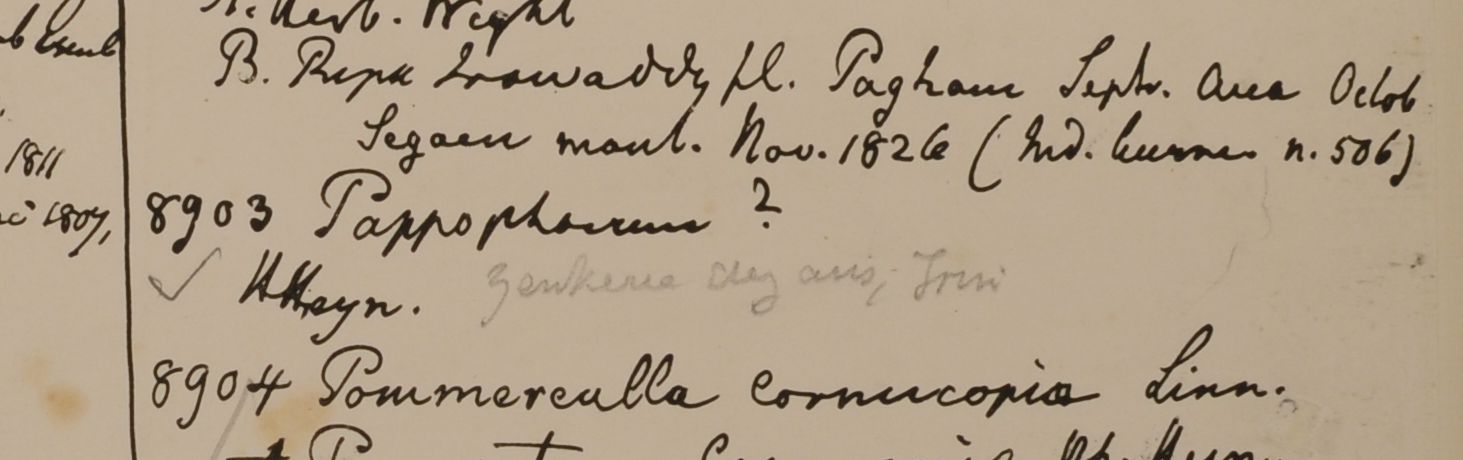 1811
1807,
Herb. Wight
B. Ripa Irawaddy fl. Pagham Septr. Ava Octob
Segaen mont. Nov. 1826 ( Ind. burm. n. 506)
8903 Pappophorum ?
✓ HHeyn. Zenkeria elegans, Trin
8904 Pommereulla cornucopia Linn.